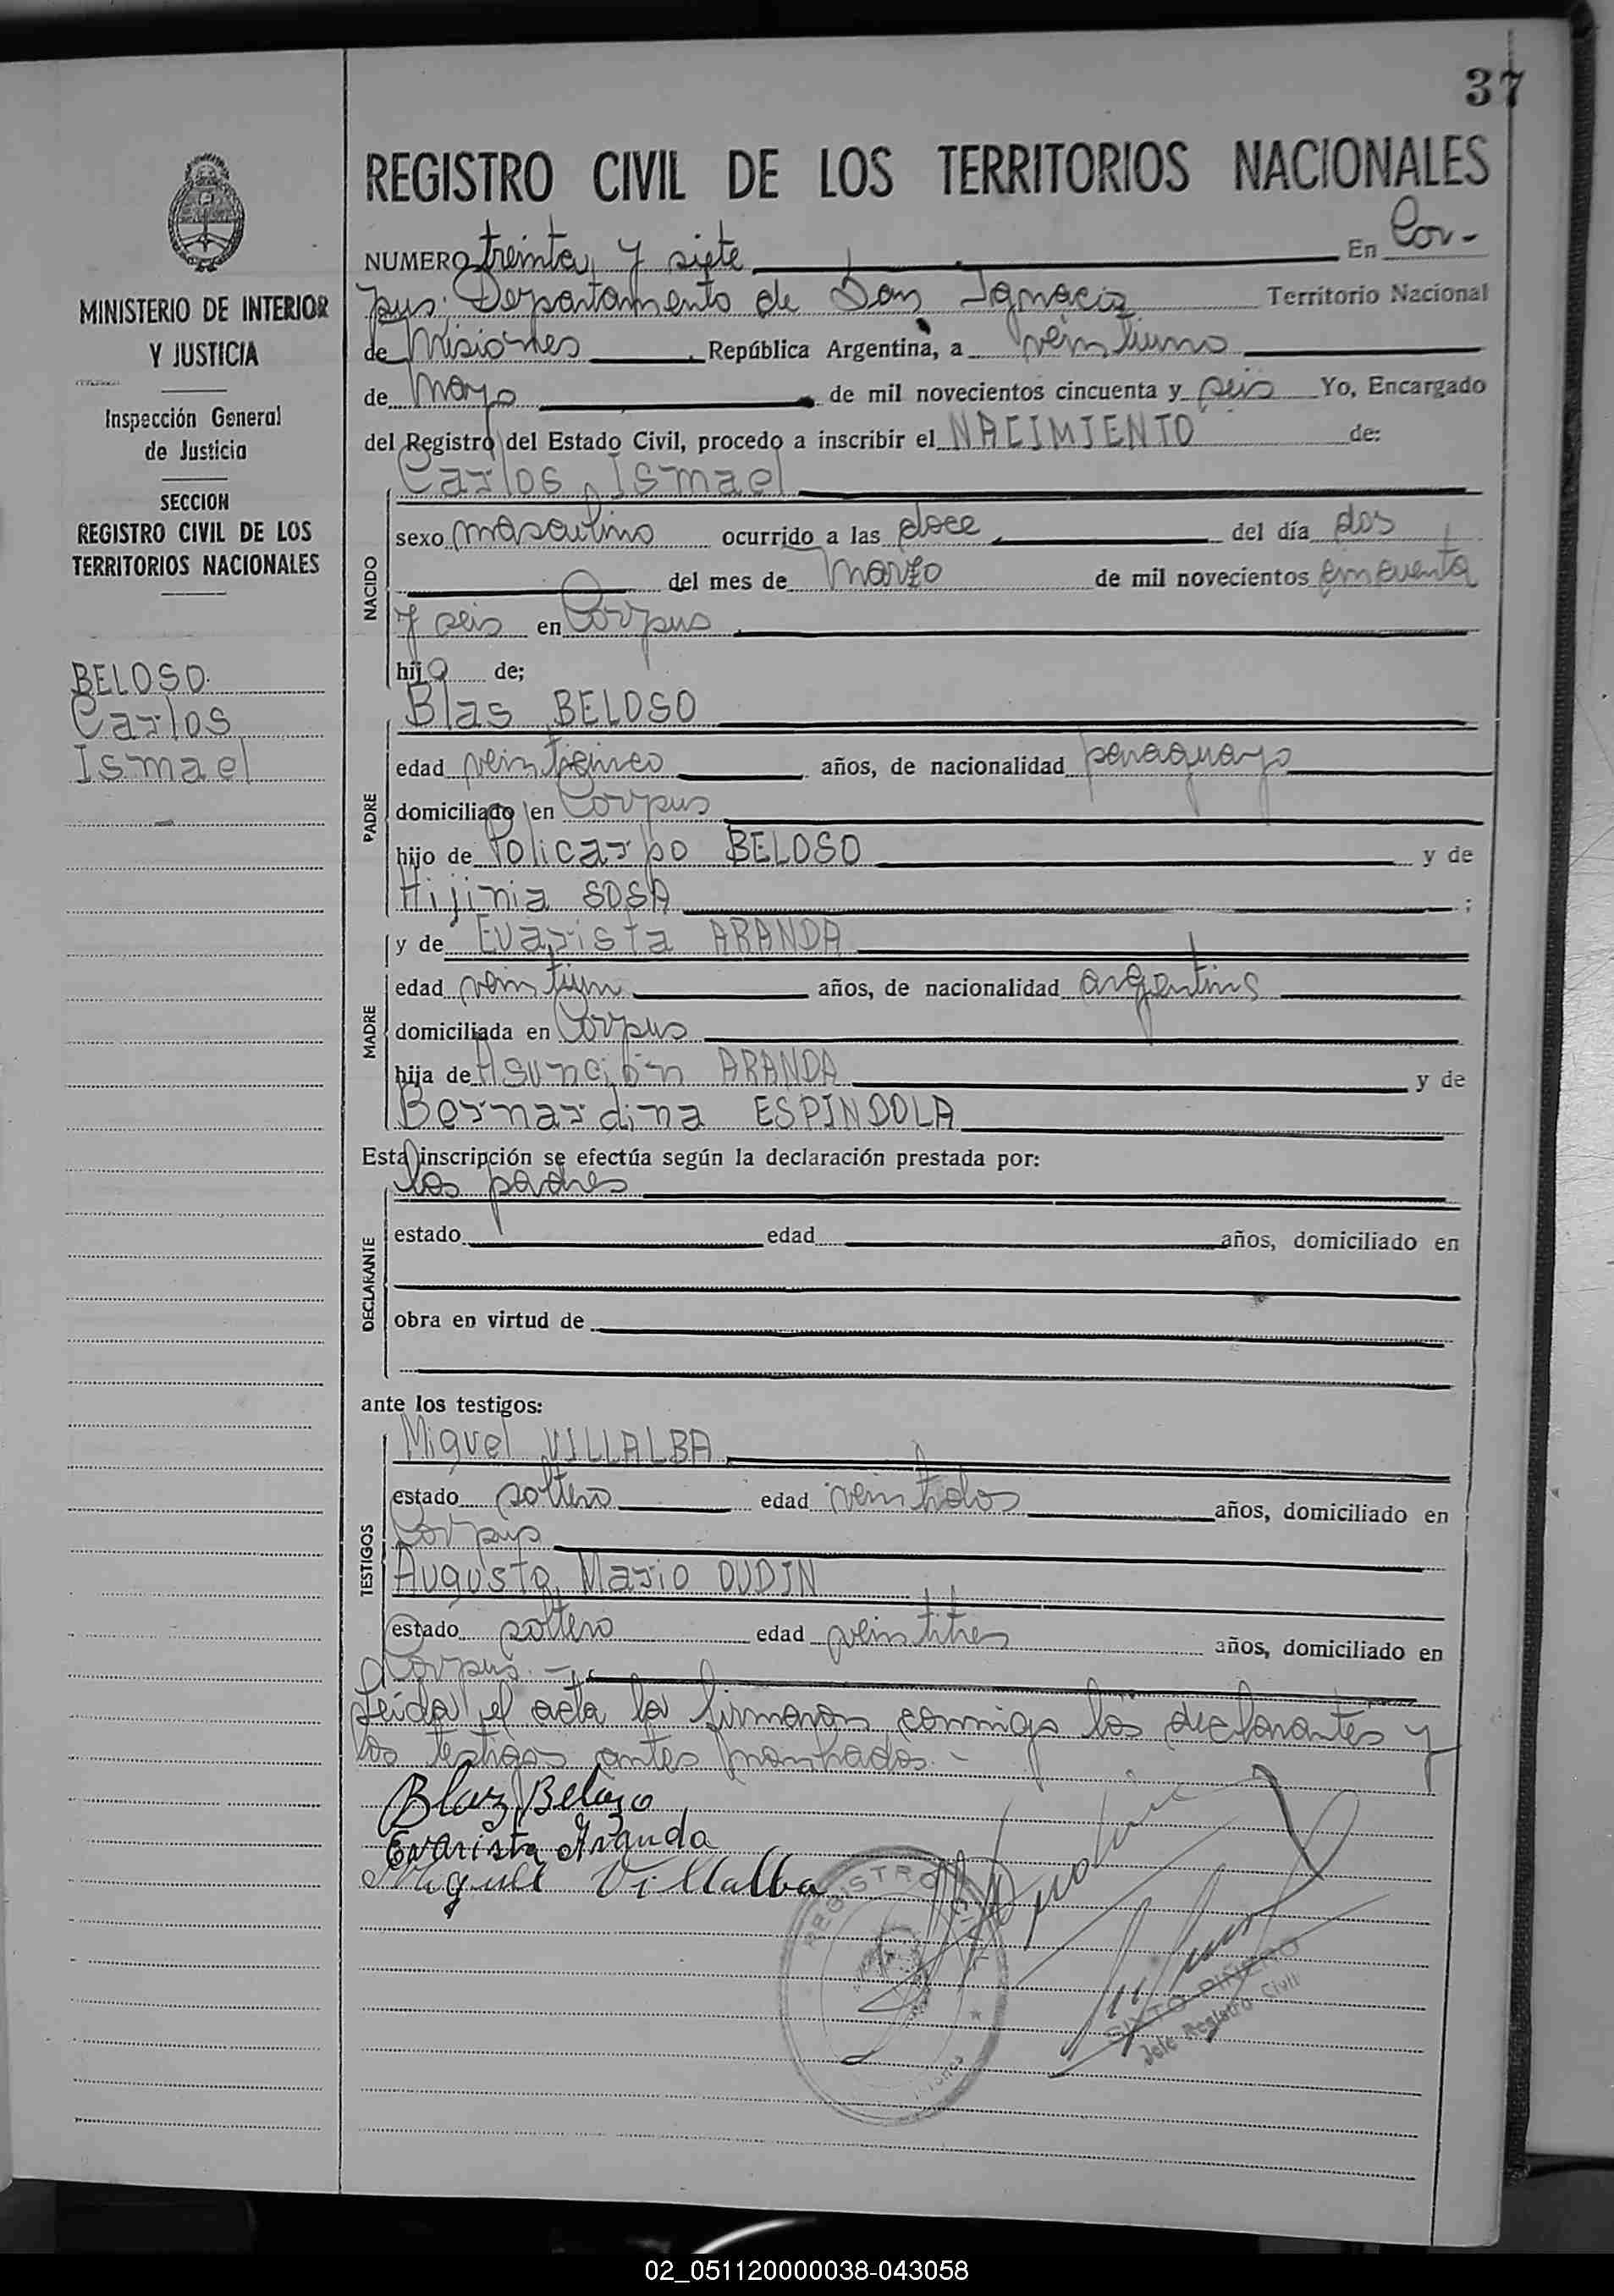 37
REGISTRO CIVIL DE LOS TERRITORIOS NACIONALES
NUMERO treinta y siete En Cor-
pus. Departamento de San Ignacio Territorio Nacional
de Misiones República Argentina, a veintiuno
de Mayo de mil novecientos cincuenta y seis Yo, Encargado
del Registro del Estado Civil, procedo a inscribir el NACIMIENTO de:
Carlos Ismael
NACIDO
sexo masculino ocurrido a las doce del día dos
del mes de Marzo de mil novecientos cincuenta
y seis en Corpus
hijo de;
Blas BELOSO
PADRE
edad veinticinco años, de nacionalidad paraguayo
domiciliado en Corpus
hijo de Policarpo BELOSO y de
Hijinia SOSA ;
y de Evarista ARANDA
MADRE
edad veintiun años, de nacionalidad argentina
domiciliada en Corpus
hija de Asunción ARANDA y de
Bernardina ESPINDOLA
Esta inscripción se efectúa según la declaración prestada por:
los padres
DECLARANTE
estado edad años, domiciliado en
obra en virtud de
ante los testigos:
Miguel VILLALBA
TESTIGOS
estado soltero edad veintidos años, domiciliado en
Corpus
Augusto Mario DUDIN
estado soltero edad veintitres años, domiciliado en
Corpus.-
Leida el acta la firmaron conmigo los declarantes y
los testigos antes nombrados.-
Blaz Belozo
Evarista Aranda
Miguel Villalba
REGISTRO CIVIL
SIXTO PIÑERO
Jefe Registro Civil
MINISTERIO DE INTERIOR
Y JUSTICIA
Inspección General
de Justicia
SECCION
REGISTRO CIVIL DE LOS
TERRITORIOS NACIONALES
BELOSO
Carlos
Ismael
02_051120000038-043058